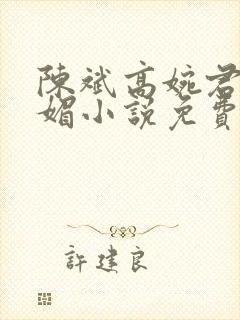 陳斌高婉君
媚小說免費
許建良